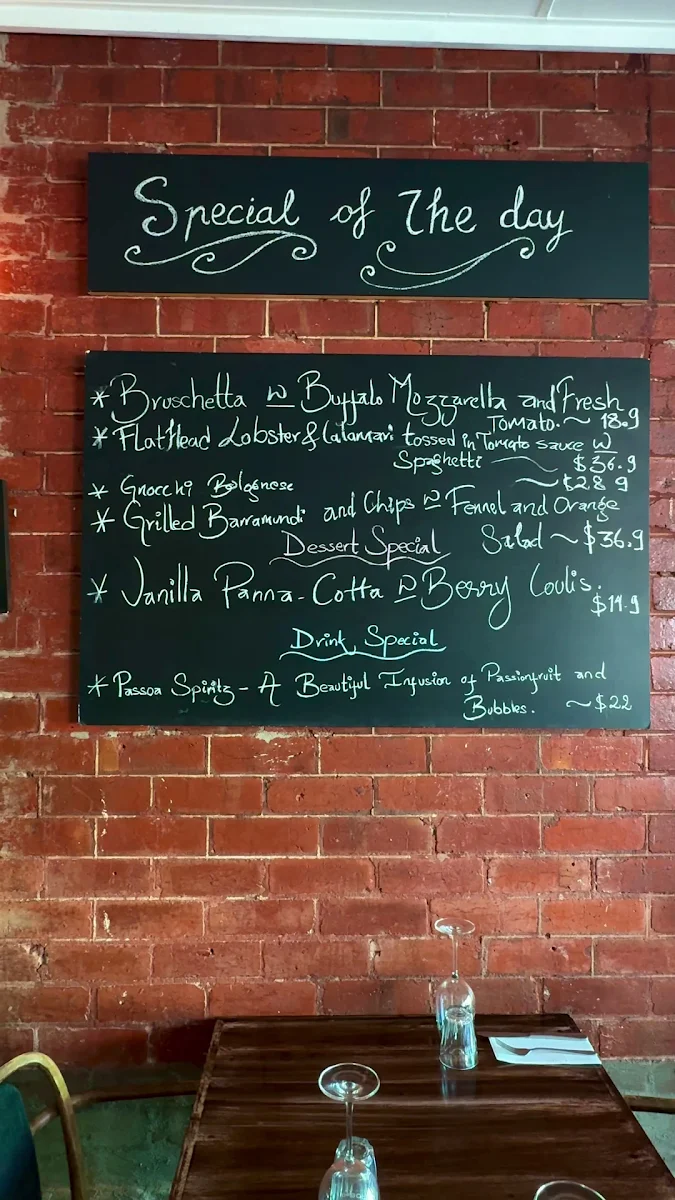 Special of The day
* Bruschetta w Buffalo Mozzarella and Fresh
Tomato. ~ 18.9
* FlatHead Lobster & Calamari tossed in Tomato sauce w
Spaghetti ~ $36.9
* Gnocchi Bolognese ~ $28.9
* Grilled Barramundi and Chips w Fennel and Orange
Salad ~ $36.9
Dessert Special
* Vanilla Panna-Cotta w Berry Coulis.
$14.9
Drink Special
* Passoa Spiritz - A Beautiful Infusion of Passionfruit and
Bubbles. ~ $22